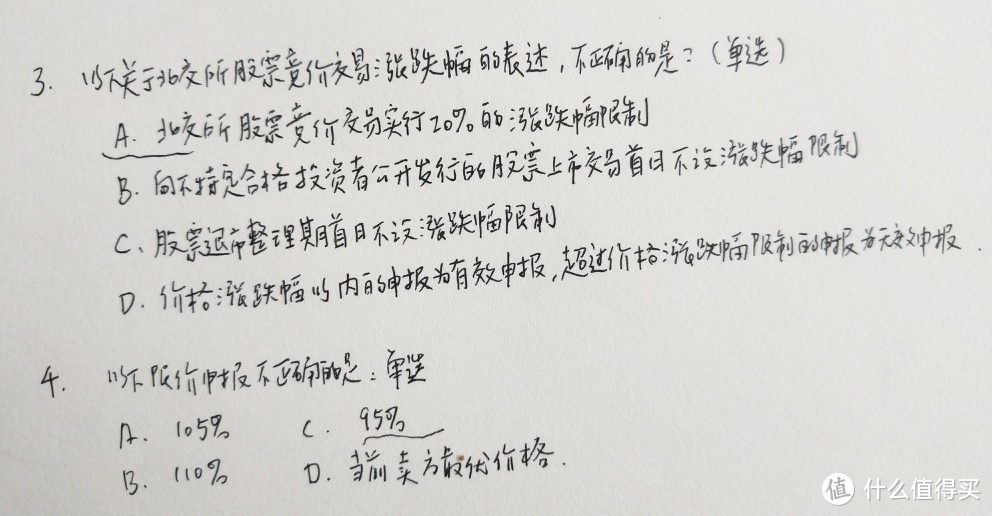 3. 以下关于北交所股票竞价交易涨跌幅的表述，不正确的是？（单选）
A. 北交所股票竞价交易实行20%的涨跌幅限制
B. 向不特定合格投资者公开发行的股票上市交易首日不设涨跌幅限制
C、股票退市整理期首日不设涨跌幅限制
D. 价格涨跌幅以内的申报为有效申报，超过价格涨跌幅限制的申报为无效申报.
4. 以下限价申报不正确的是：单选
A. 105% C. 95%
B. 110% D. 当前卖方最优价格.
值 什么值得买